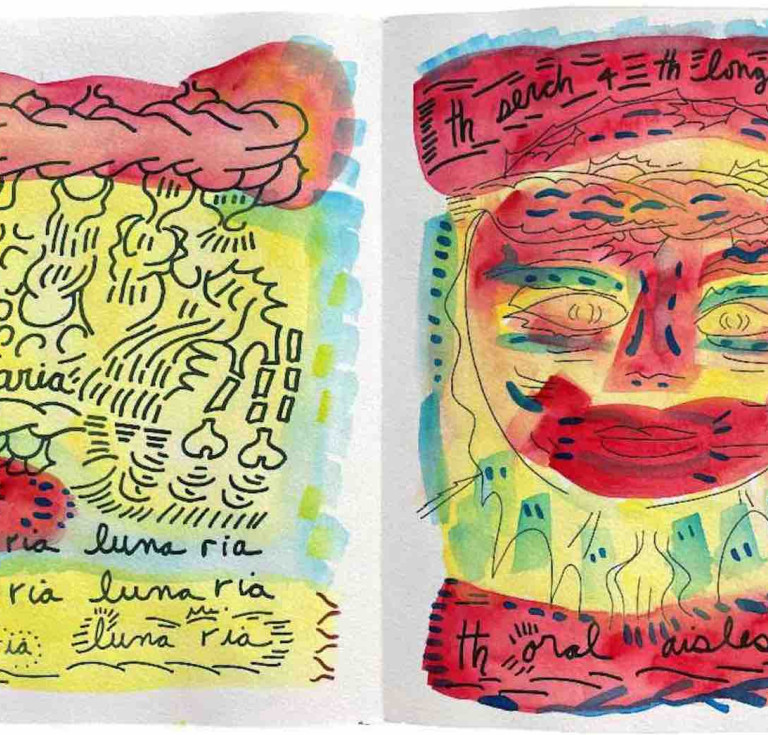 aria
ria luna ria
ria luna ria
ia luna ria
th serch 4 th long
th oral aisles